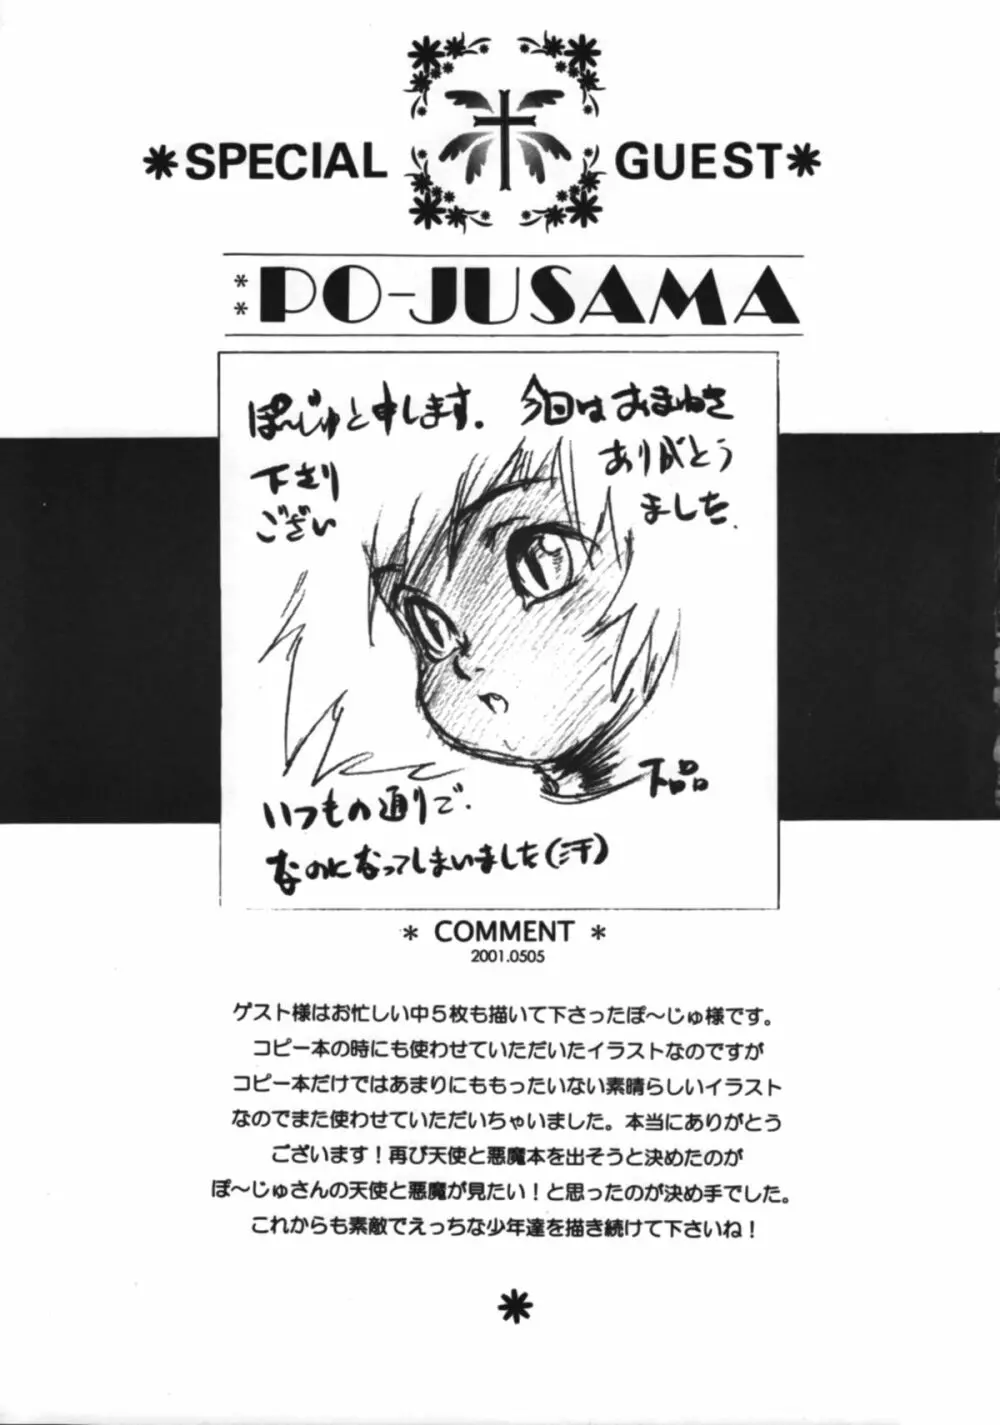 *SPECIAL GUEST*
PO-JUSAMA
ぽ〜じゅと申します。今回はおまねき
下さり ありがとう
ござい ました。
下品
いつもの通りで、
なのになってしまいました(汗)
* COMMENT *
2001.0505
ゲスト様はお忙しい中5枚も描いて下さったぽ〜じゅ様です。
コピー本の時にも使わせていただいたイラストなのですが
コピー本だけではあまりにももったいない素晴らしいイラスト
なのでまた使わせていただいちゃいました。本当にありがとう
ございます!再び天使と悪魔本を出そうと決めたのが
ぽ〜じゅさんの天使と悪魔が見たい!と思ったのが決め手でした。
これからも素敵でえっちな少年達を描き続けて下さいね!